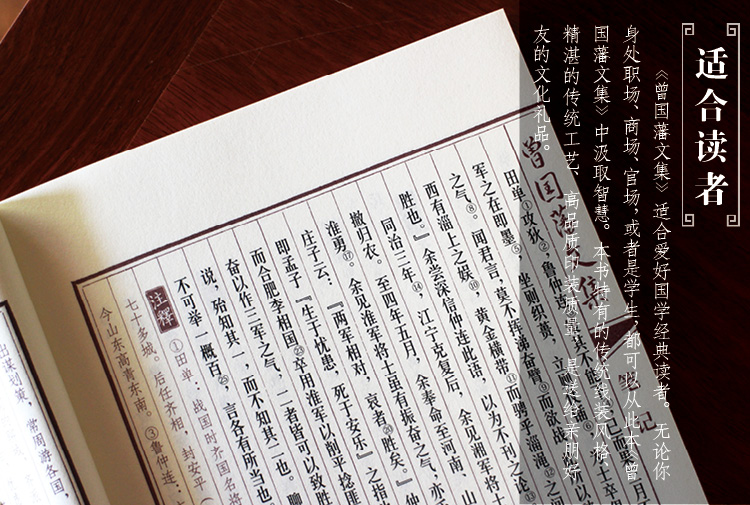 适合读者
《曾国藩文集》适合爱好国学经典读者。无论你
身处职场、商场、官场，或者是学生，都可以从此本《曾
国藩文集》中汲取智慧。本书特有的传统线装风格、
精湛的传统工艺、高品质印装质量，是送给亲朋好
友的文化礼品。
曾国藩文集
记
田单①攻狄②，鲁仲连
军之在即墨⑤，坐则织蒉，立
之气⑧。闻君言，莫不挥涕奋臂⑨而欲战
西有淄上之娱⑩，黄金横带⑪而骋乎淄渑⑫之
胜也。』余尝深信仲连此语，以为不刊之论⑬
同治三年⑭，江宁克复后，余见湘军将士
撤归农。至四年五月，余奉命至河南、山
淮勇⑰。余见淮军将士虽有振奋之气，亦
庄子云：『两军相对，哀者⑳胜矣。』仲
即孟子『生于忧患，死于安乐』之指
而合肥李相国㉓卒用淮军以削平捻匪
奋以作三军之气，二者皆可以致胜
说，殆知其一，而不知其二也。聊
不可举一概百㉕，言各有所当也
注释
①田单：战国时齐国名将
七十多城。后任齐相，封安平
今山东高青东南。③鲁仲连：
出谋划策，常周游各国，